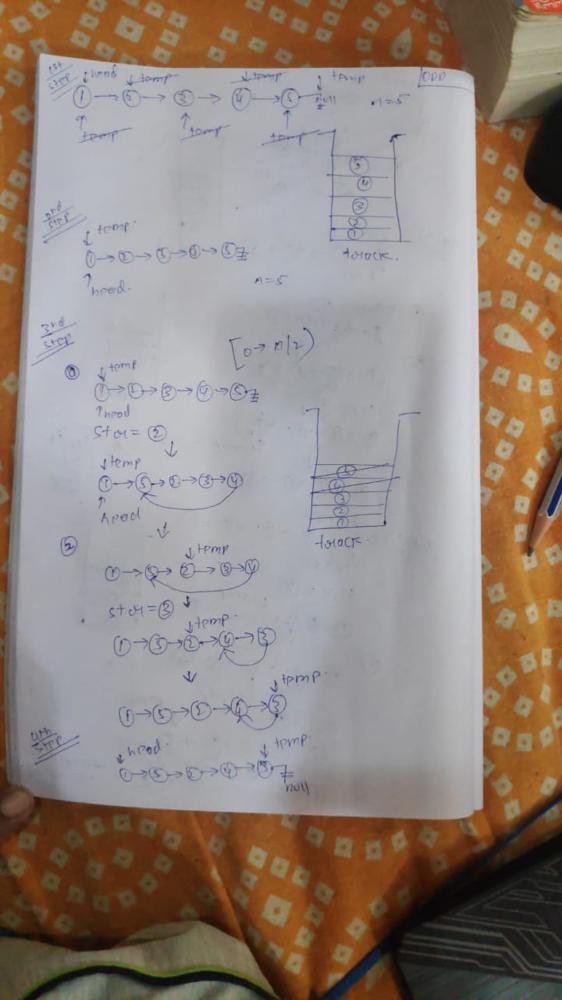 1st step
ODD
head temp temp temp
1 → 2 → 3 → 4 → 5 null n=5
temp temp temp
5
4
3
2
1
track.
2nd step
temp
1 → 2 → 3 → 4 → 5
head.
n=5
3rd step
[0 → n/2)
1
temp
1 → 2 → 3 → 4 → 5
head
str = 2
temp
1 → 5 → 2 → 3 → 4
head
5
4
3
2
1
track.
2
temp
1 → 5 → 2 → 3 → 4
str = 3
temp.
1 → 5 → 2 → 4 → 3
temp.
1 → 5 → 2 → 4 → 3
4th step
head. temp.
1 → 5 → 2 → 4 → 3
null